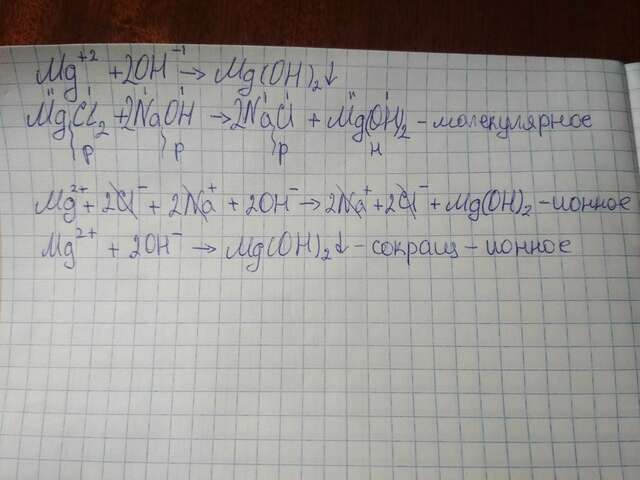 Mg⁺² + 2OH⁻¹ → Mg(OH)₂↓
II I I I I I II I
MgCl₂ + 2NaOH → 2NaCl + Mg(OH)₂ - молекулярное
р р р н
Mg²⁺ + 2Cl⁻ + 2Na⁺ + 2OH⁻ → 2Na⁺ + 2Cl⁻ + Mg(OH)₂ - ионное
Mg²⁺ + 2OH⁻ → Mg(OH)₂↓ - сокращ - ионное